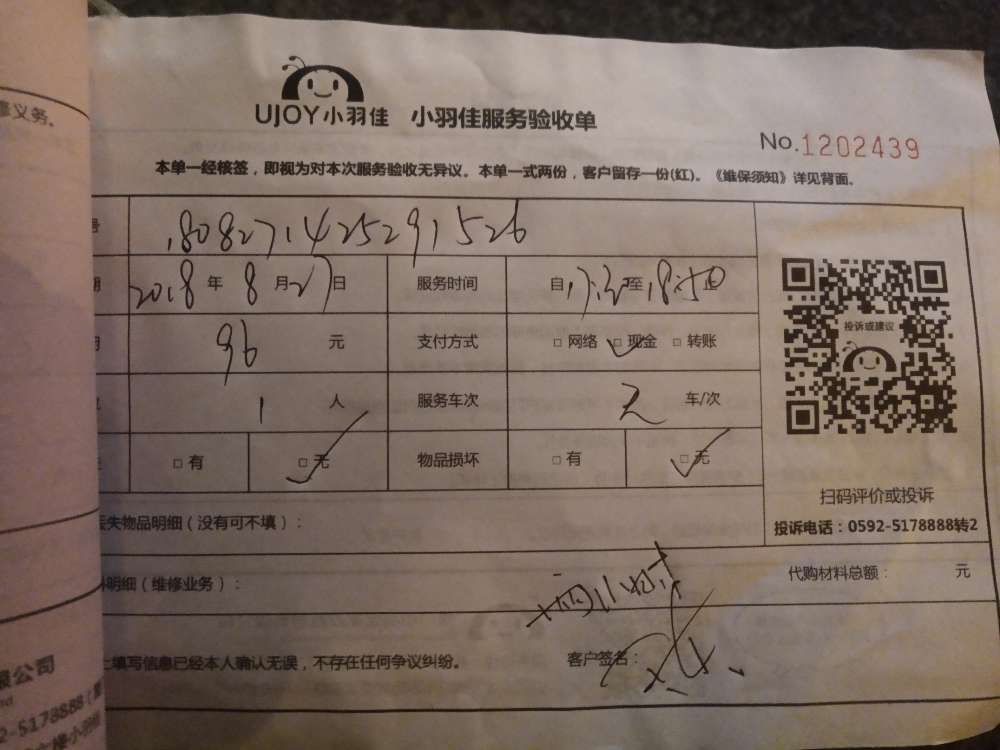 修义务。
UJOY小羽佳 小羽佳服务验收单
No.1202439
本单一经核签，即视为对本次服务验收无异议。本单一式两份，客户留存一份(红)。《维保须知》详见背面。
号 1808271425291526
期 2018 年 8 月 27 日 服务时间 自 至 18:50 止
用 96 元 支付方式 □ 网络 □ 现金 □ 转账
1 人 服务车次 2 车/次
□ 有 □ 无 物品损坏 □ 有 □ 无
投诉或建议
扫码评价或投诉
投诉电话：0592-5178888转2
丢失物品明细（没有可不填）：
料明细（维修业务）： 代购材料总额： 元
上填写信息已经本人确认无误，不存在任何争议纠纷。 客户签名：
服公司
2-5178888
楼小羽佳